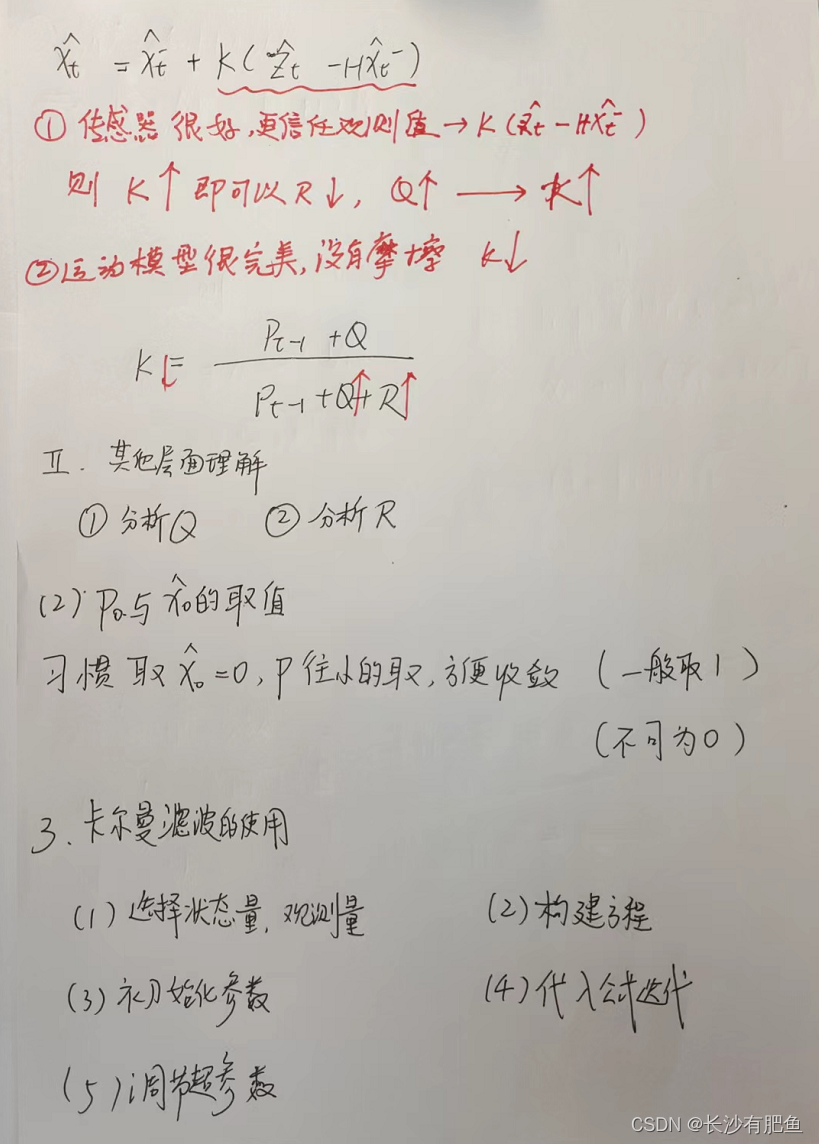 x̂t = x̂t⁻ + K(ẑt - Hx̂t⁻)
① 传感器很好,更信任观测值→K(ẑt-Hx̂t⁻)
则 K↑ 即可以R↓, Q↑ → K↑
②运动模型很完美,没有摩擦 K↓
K↓= (Pt-1 + Q) / (Pt-1 + Q↑+R↑)
Ⅱ. 其他层面理解
①分析Q ②分析R
(2) P0与x̂0的取值
习惯取x̂0=0,P往小的取,方便收敛 (一般取1)
(不可为0)
3.卡尔曼滤波的使用
(1)选择状态量,观测量 (2)构建方程
(3)初始化参数 (4)代入公式迭代
(5)调节超参数
CSDN @长沙有肥鱼